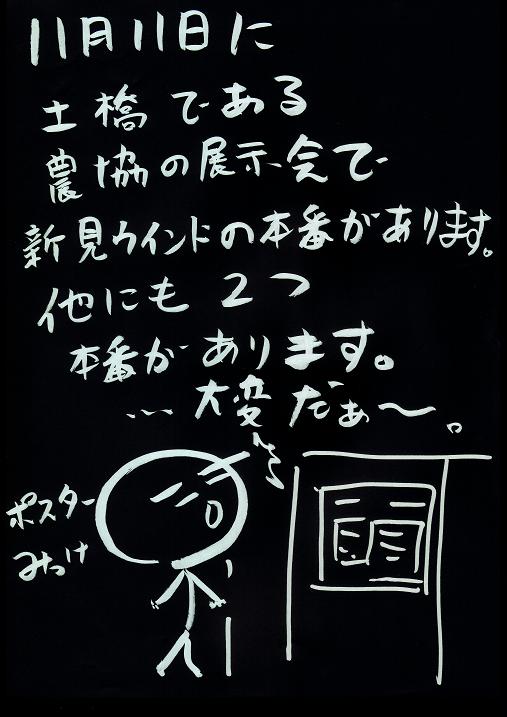 11月11日に
土橋である
農協の展示会で
新見ウインドの本番があります。
他にも 2つ
本番があります。
…大変だぁ〜。
ポスター
みっけ